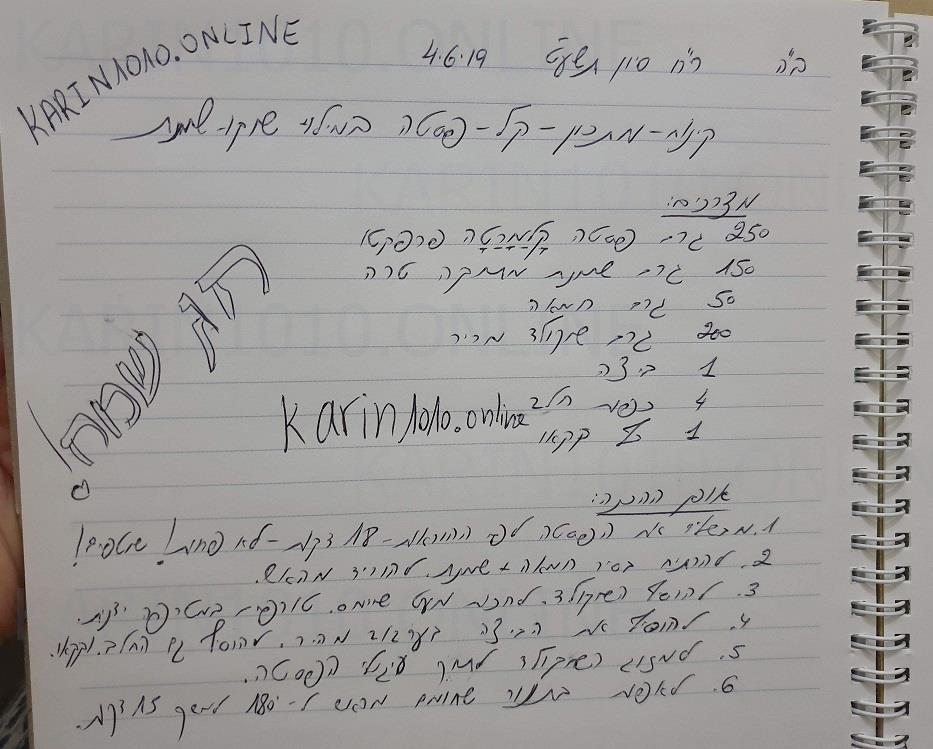 KARIN1010.ONLINE
ב"ה ר"ח סיון תשע"ט 4.6.19
קינוח-מתכון-קל-פסטה במילוי שוקו-שמנת
מצרכים:
250 גרם פסטה קָלָמָרָטָה פרפקטו
150 גרם שמנת מתוקה טרה
50 גרם חמאה
200 גרם שוקולד מריר
1 ביצה
4 כפות חלב
1 כף קקאו
karin1010.online
חג שמח!
אופן ההכנה:
1. מבשלים את הפסטה לפי ההוראות - 18 דקות - לא פחות! שוטפים!
2. להרתיח בסיר חמאה + שמנת. להוריד מהאש.
3. להוסיף השוקולד. לחכות מעט שיימס. טורפים במטרפה ידנית.
4. להוסיף את הביצה בערבוב מהיר. להוסיף גם החלב. וקקאו.
5. למזוג השוקולד לתוך עיגולי הפסטה.
6. לאפות בתנור שחומם מראש ל-180° למשך 15 דקות.